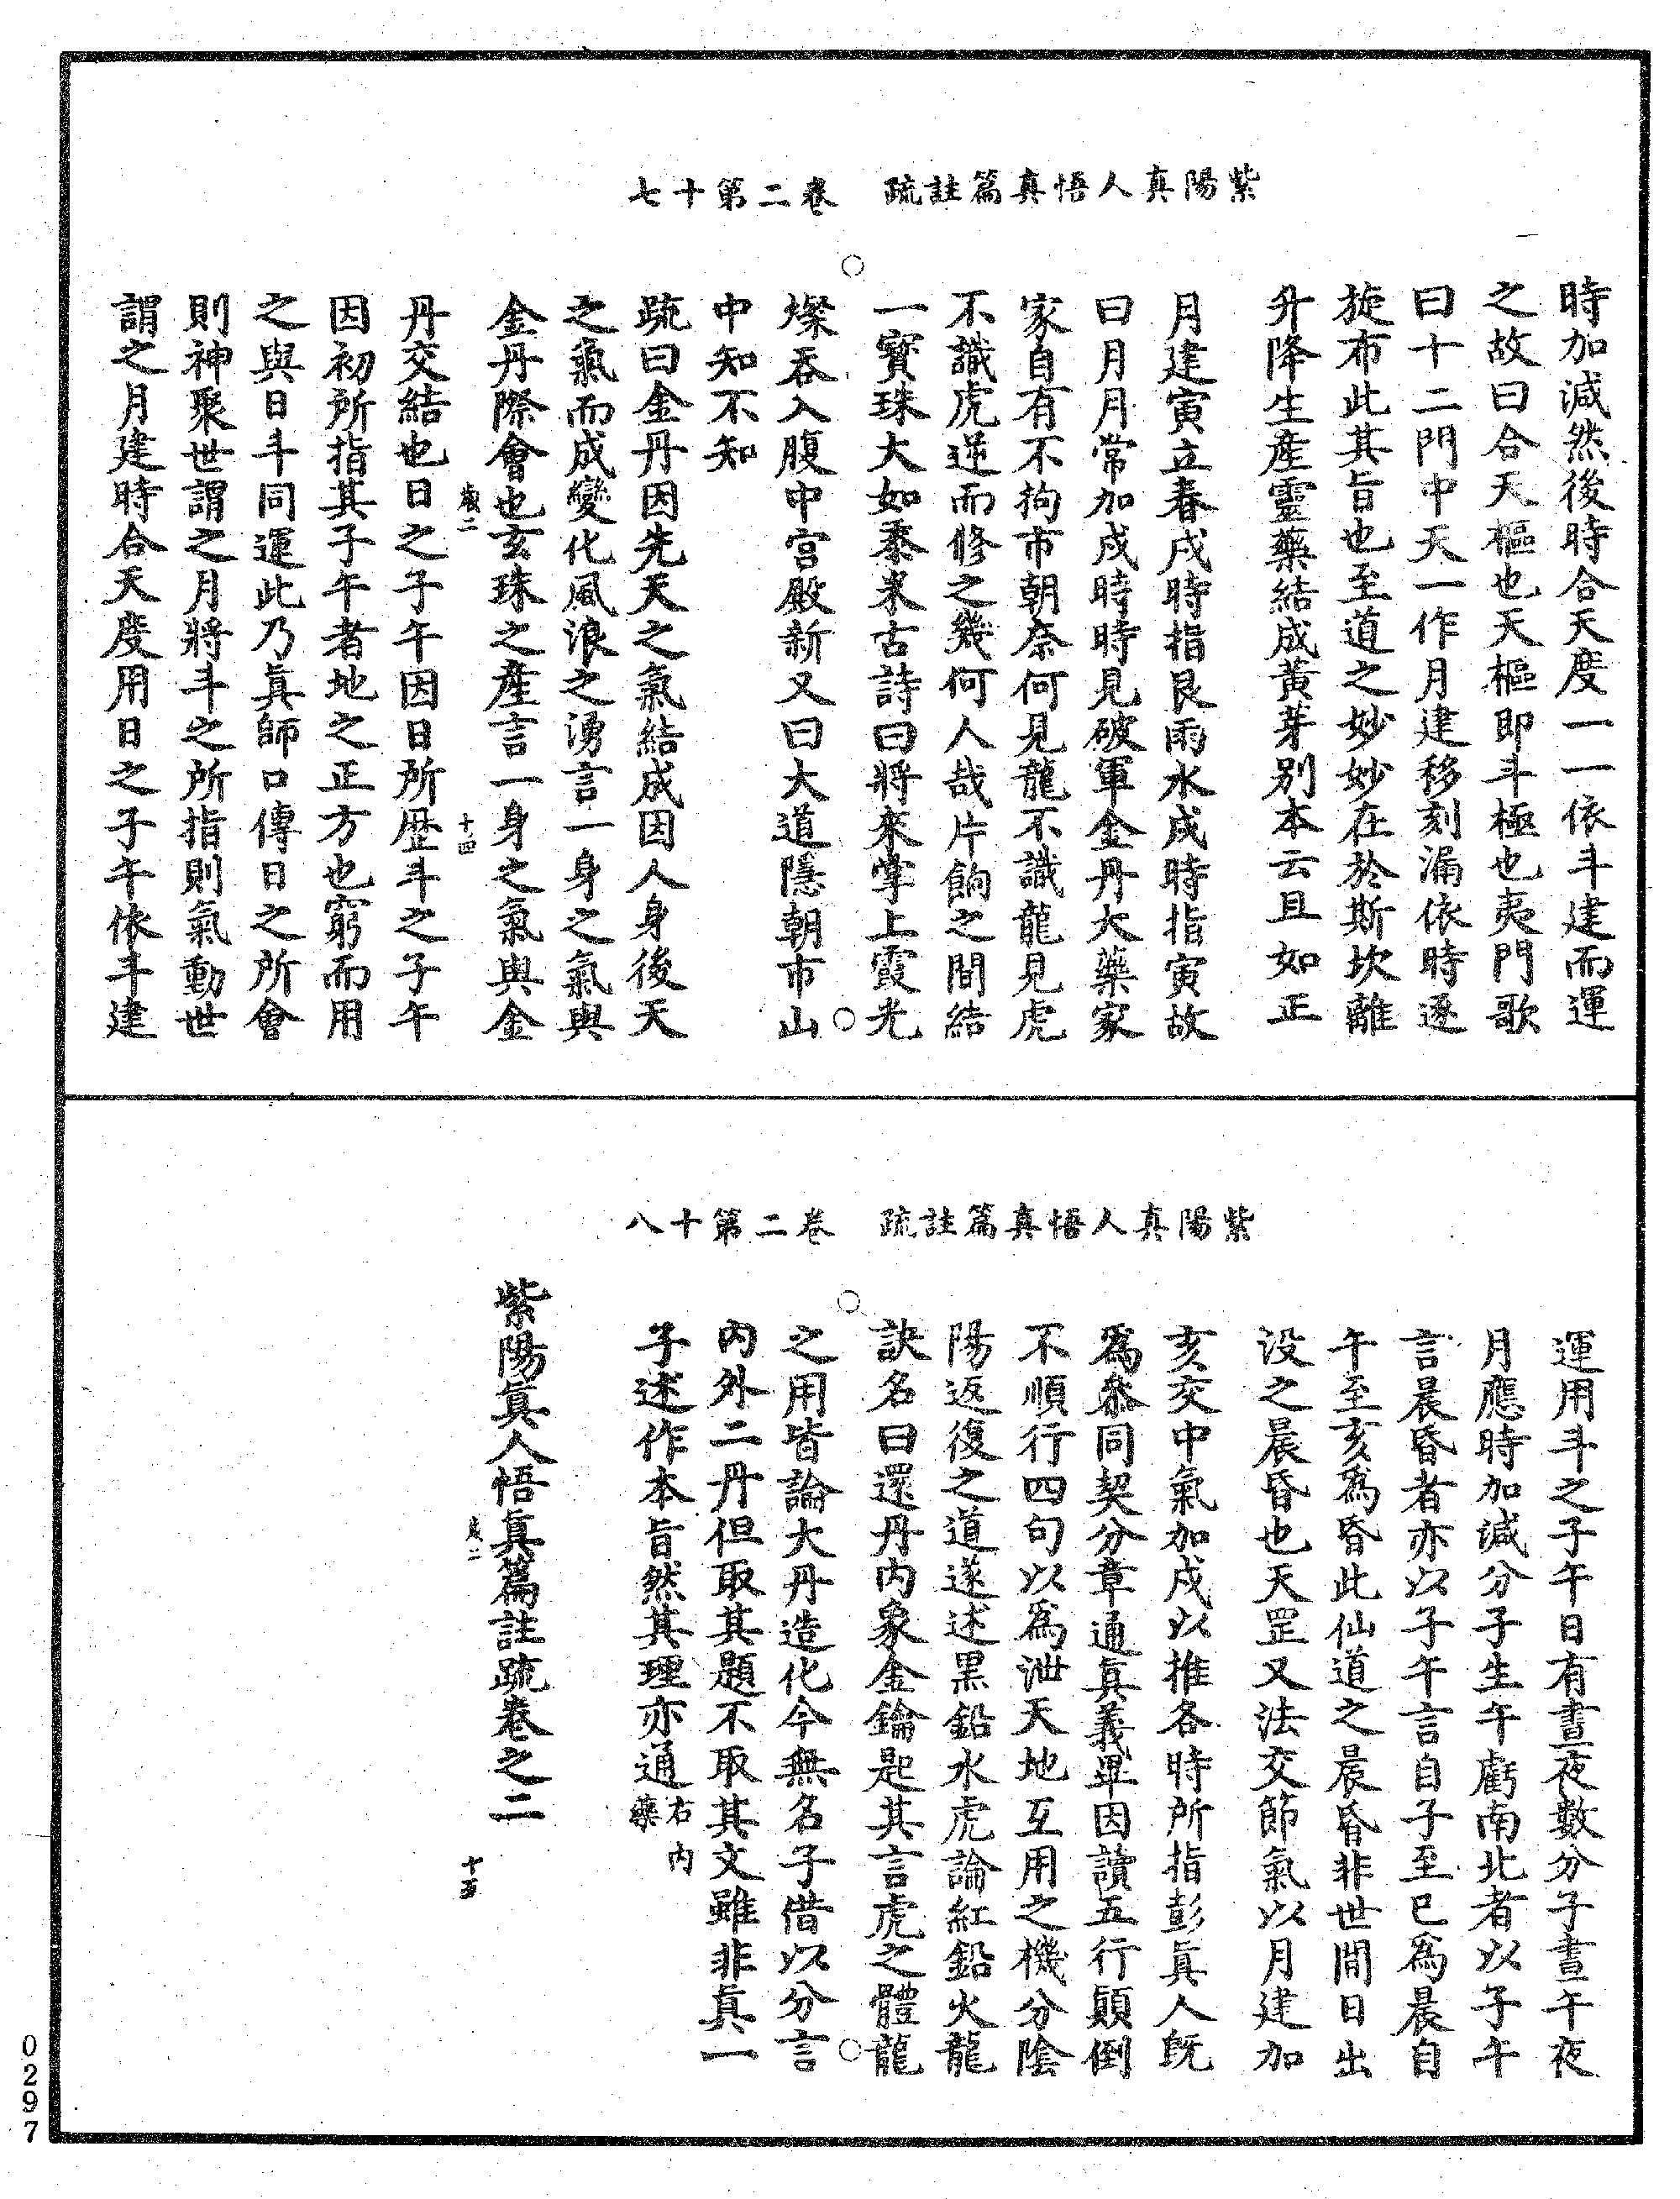 紫陽真人悟真篇註疏　卷二第十七
時加減然後時合天度一一依斗建而運
之故曰合天樞也天樞即斗極也夷門歌
曰十二門中天一作月建移刻漏依時逐
旋布此其旨也至道之妙妙在於斯坎離
升降生產靈藥結成黃芽別本云且如正
月建寅立春戌時指艮雨水戌時指寅故
曰月月常加戌時時見破軍金丹大藥家
家自有不拘市朝奈何見龍不識龍見虎
不識虎逆而修之幾何人哉片餉之間結
一寶珠大如黍米古詩曰將來掌上霞光
燦吞入腹中宮殿新又曰大道隱朝市山
中知不知
疏曰金丹因先天之氣結成因人身後天
之氣而成變化風浪之湧言一身之氣與
金丹際會也玄珠之產言一身之氣與金
歲二　十四
丹交結也日之子午因日所歷斗之子午
因初所指其子午者地之正方也窮而用
之與日斗同運此乃真師口傳日之所會
則神聚世謂之月將斗之所指則氣動世
謂之月建時合天度用日之子午依斗建
紫陽真人悟真篇註疏　卷二第十八
運用斗之子午日有晝夜數分子晝午夜
月應時加減分子生午虧南北者以子午
言晨昏者亦以子午言自子至巳為晨自
午至亥為昏此仙道之晨昏非世間日出
没之晨昏也天罡又法交節氣以月建加
亥交中氣加戌以推各時所指彭真人既
為叅同契分章通真義畢因讀五行顛倒
不順行四句以為泄天地互用之機分陰
陽返復之道遂述黑鉛水虎論紅鉛火龍
訣名曰還丹內象金鑰匙其言虎之體龍
之用皆論大丹造化今無名子借以分言
內外二丹但取其題不取其文雖非真一
子述作本旨然其理亦通右內藥
紫陽真人悟真篇註疏卷之二
歲二　十五
0297